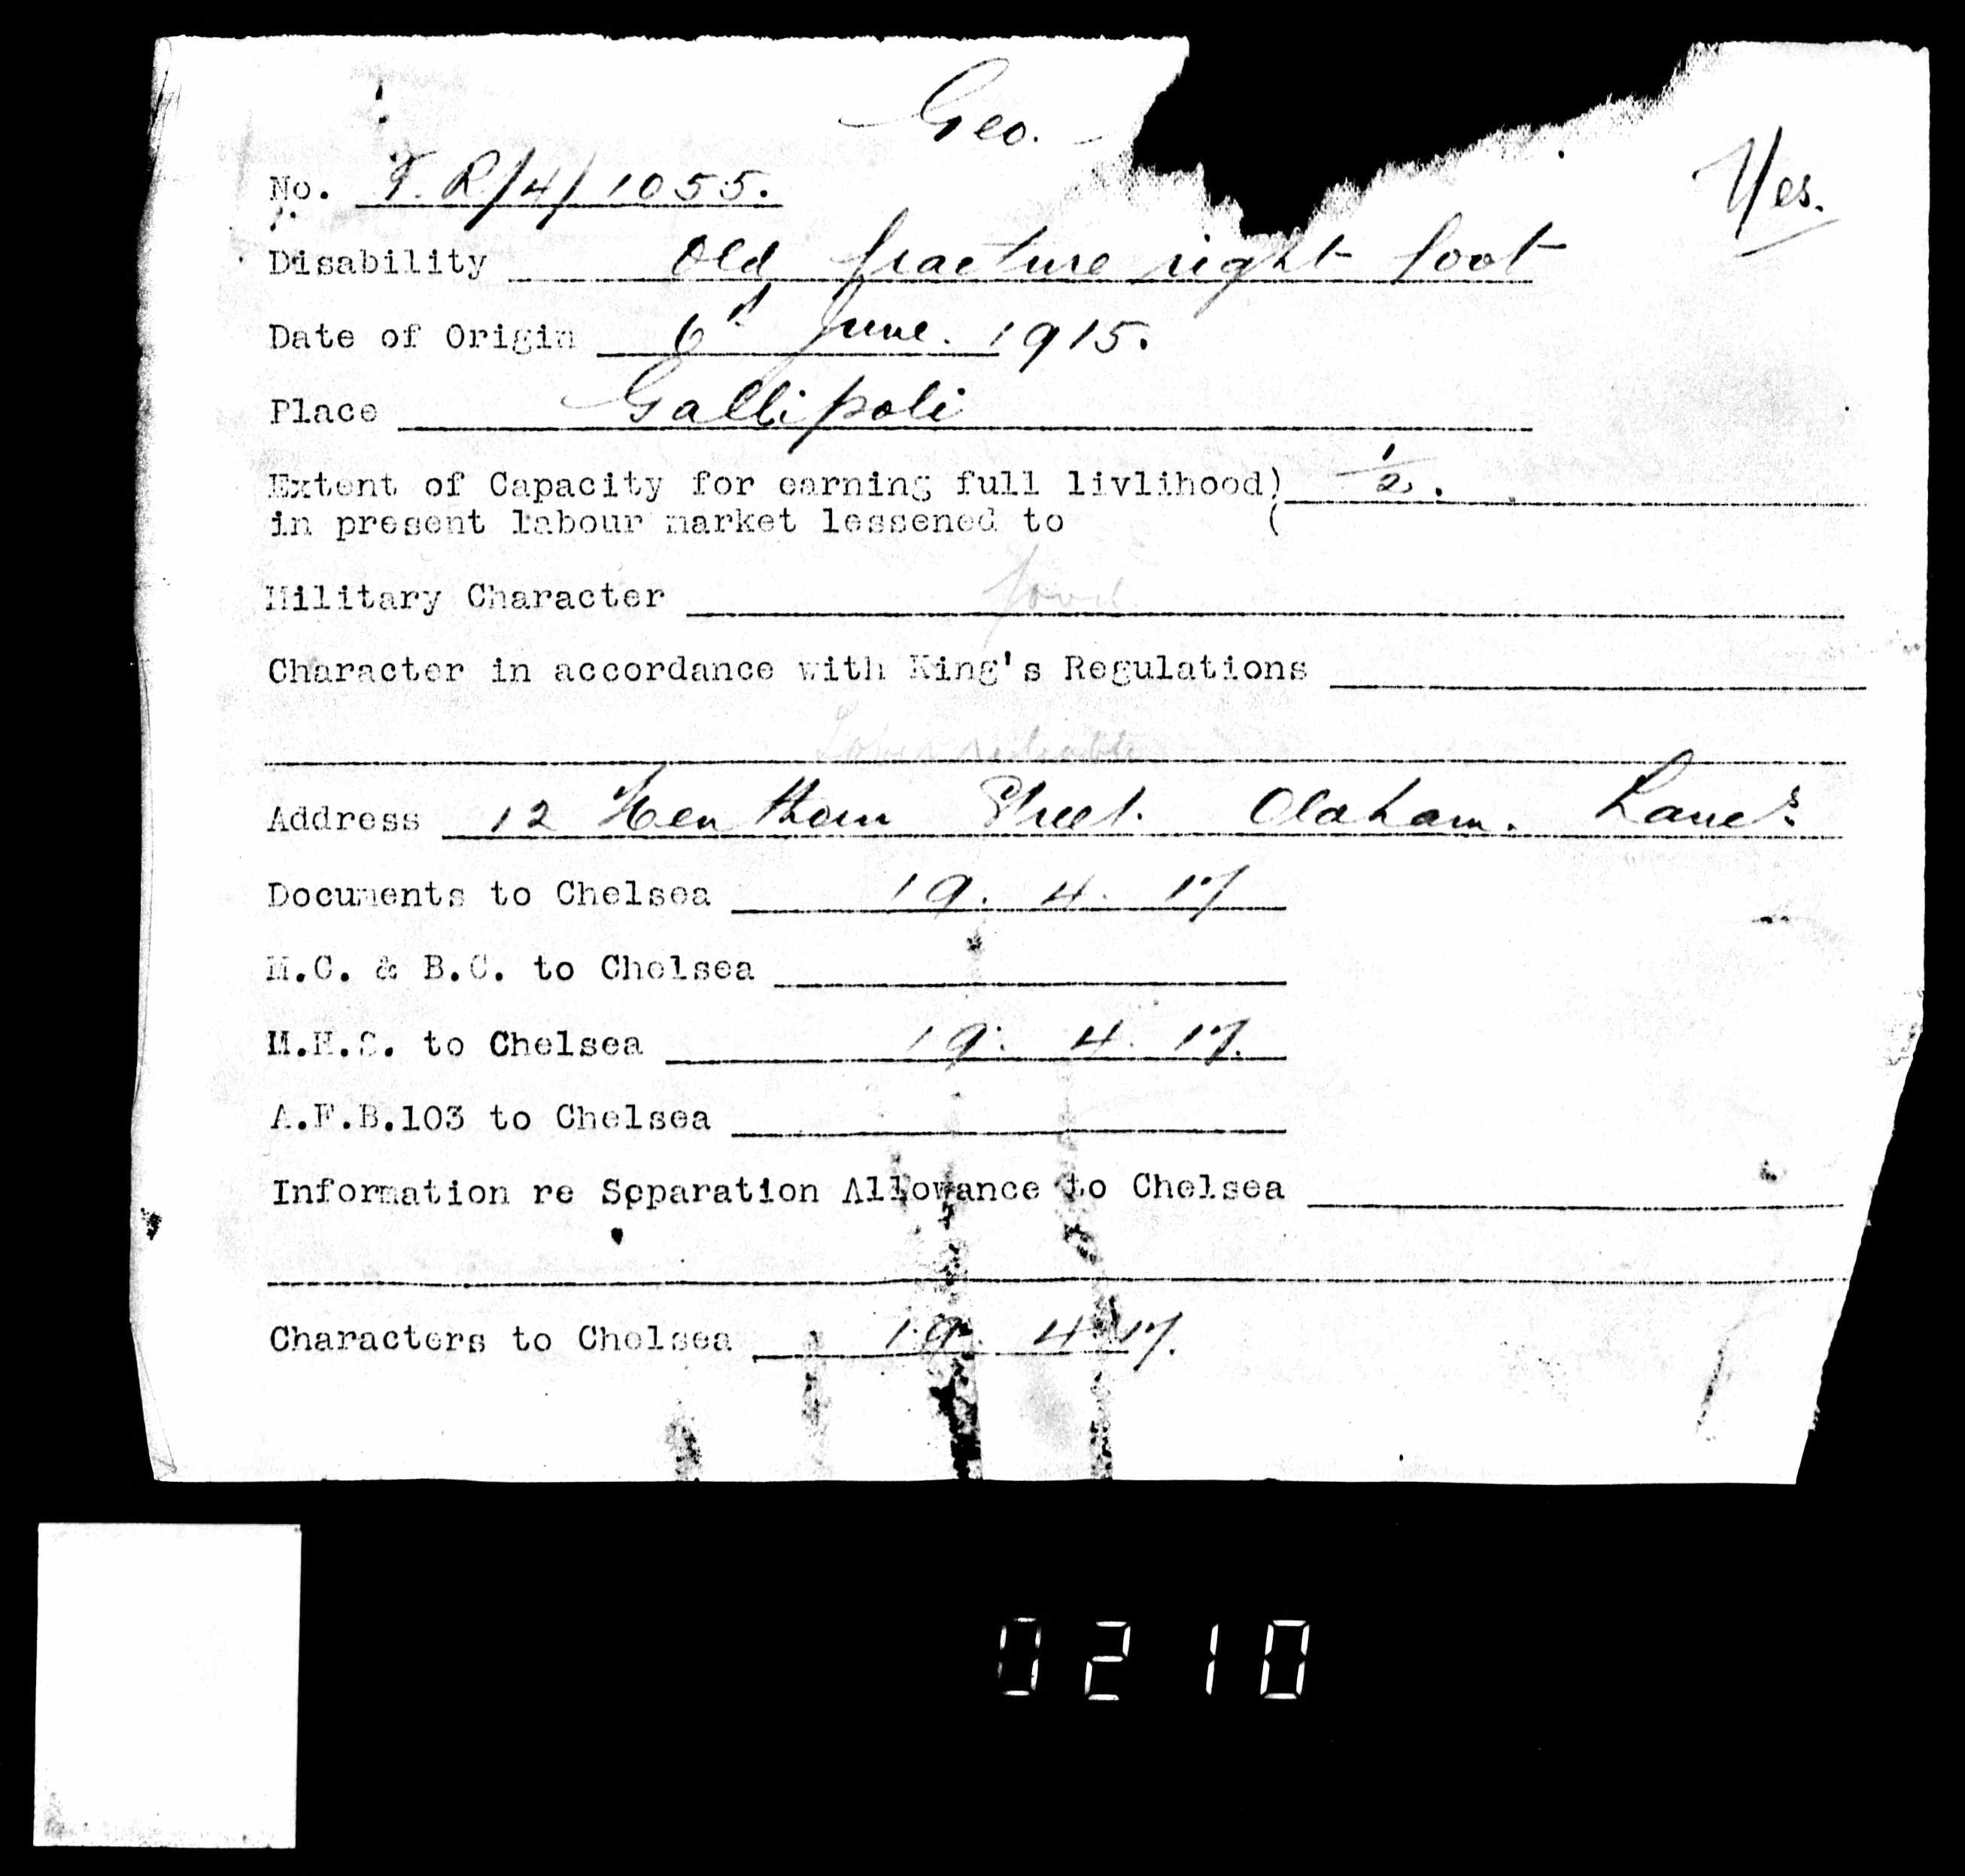 Geo.
Yes.
No. T.R/4/1055.
Disability Old fracture right foot
Date of Origin 6th June. 1915.
Place Gallipoli
Extent of Capacity for earning full livlihood) 1/2.
in present labour market lessened to (
Military Character Good
Character in accordance with King's Regulations
Sober reliable
Address 12 Henthorn Street. Oldham. Lancs
Documents to Chelsea 19. 4. 17
M.C. & B.C. to Chelsea
M.H.S. to Chelsea 19. 4. 17.
A.F.B.103 to Chelsea
Information re Separation Allowance to Chelsea
Characters to Chelsea 19. 4 17.
0210